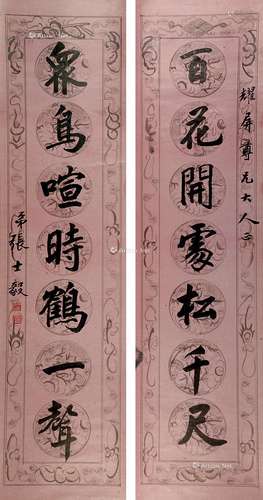 耀屏尊兄大人正
百花開處松千尺
眾鳥喧時鶴一聲
弟張士毅